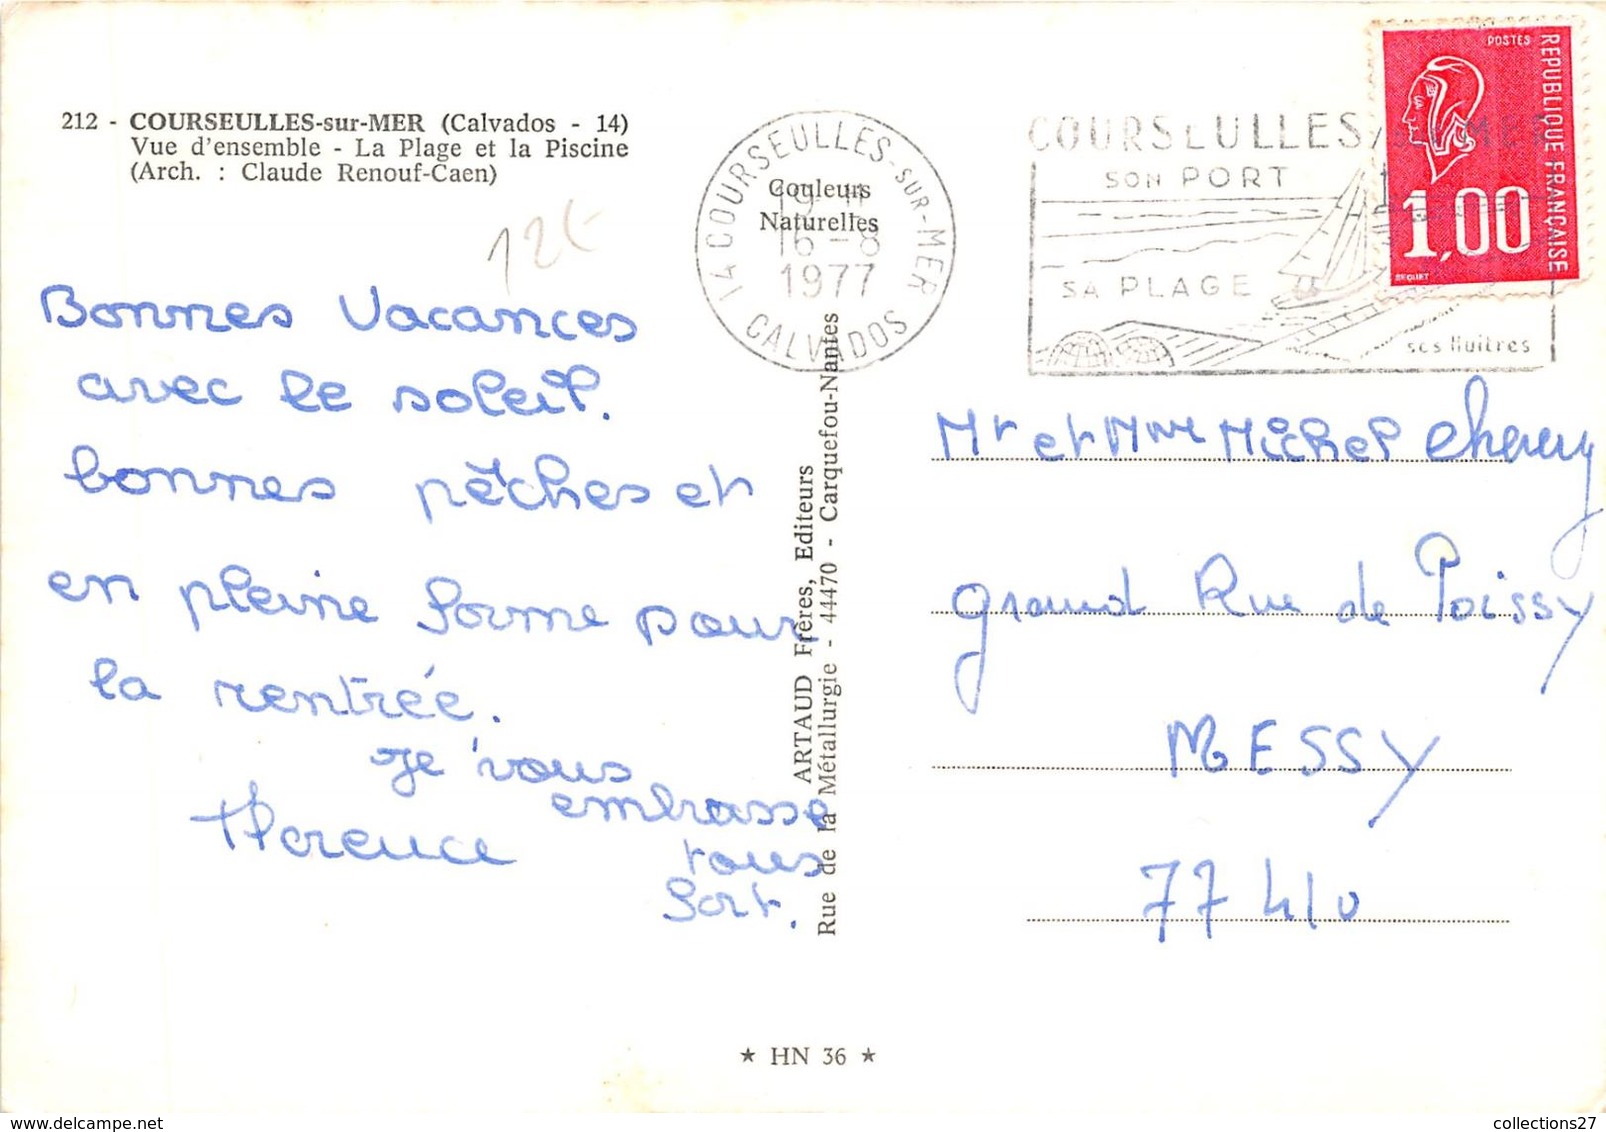 212 - COURSEULLES-sur-MER (Calvados - 14)
Vue d'ensemble - La Plage et la Piscine
(Arch. : Claude Renouf-Caen)
12€
Bonnes Vacances
avec le soleil.
bonnes pêches et
en pleine forme pour
la rentrée.
Je vous
embrasse
tous
fort.
Florence
Couleurs
Naturelles
14 COURSEULLES-SUR-MER
16-8
1977
CALVADOS
ARTAUD Frères, Editeurs
Rue de la Métallurgie - 44470 - Carquefou-Nantes
COURSEULLES / SUR MER
SON PORT
SA PLAGE
ses Huîtres
POSTES
REPUBLIQUE FRANÇAISE
1,00
BEQUET
Mr et Mme Michel
grand Rue de Poissy
MESSY
77410
★ HN 36 ★
collections27